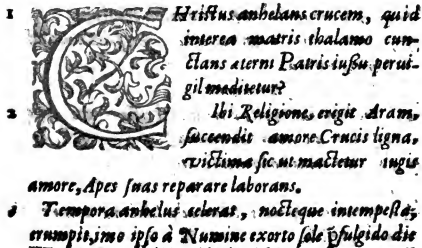 1 CHristus anhelans crucem, quid
interea matris thalamo cun-
ctans æterni Patris iussu pervi-
gil meditetur?
2 Ibi Religione, erigit Aram,
succendit amore Crucis ligna,
victima sic ut mactetur iugis
amore, Apes suas reparare laborans.
3 Tempora anhelus celerat, nocteque intempesta,
erumpit, imo ipso à Numine exorto sole p̃fulgido die